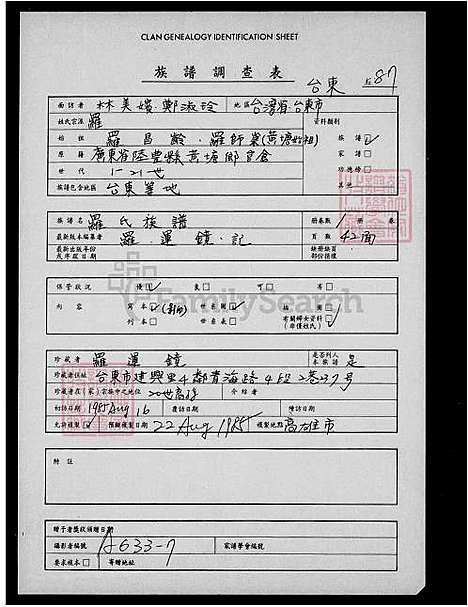 CLAN GENEALOGY IDENTIFICATION SHEET
族譜調查表
台東 87
面訪者 林美嬪.鄭淑玲 地區 台灣省台東市
姓氏宗派 羅 資料類別
始祖 羅昌齡.羅師 族譜
原籍 廣東省陸豐縣黃塘鄉 家譜
世代 1-21世 功德榜
族譜包含地區 台東等地 其他
族譜名 羅氏族譜 冊卷數 1 冊 卷
最新版本編纂者 羅運鏡.記 頁數 42面
最新出版年份 缺冊缺頁
或序跋日期 部份摘樣
保管狀況 優 良 可 劣
內容 寫本 世系圖 插圖
刊本 世系表 有關婦女資料
(非僅姓氏)
FamilySearch
珍藏者 羅運鏡 是否列入本族譜 是
珍藏者住址 台東市建興里4鄰青海路4段2巷237號
珍藏者在(家)宗族中之地位 介紹者
初訪日期 1985 Aug 16 覆訪日期 續訪日期
允許複製 預期複製日期 22 Aug 1985 複製地點 高雄市
附註
贈予者獎狀頒贈日期
攝影者編號 A633-7 家譜學會編號
要求複本 寄贈地址